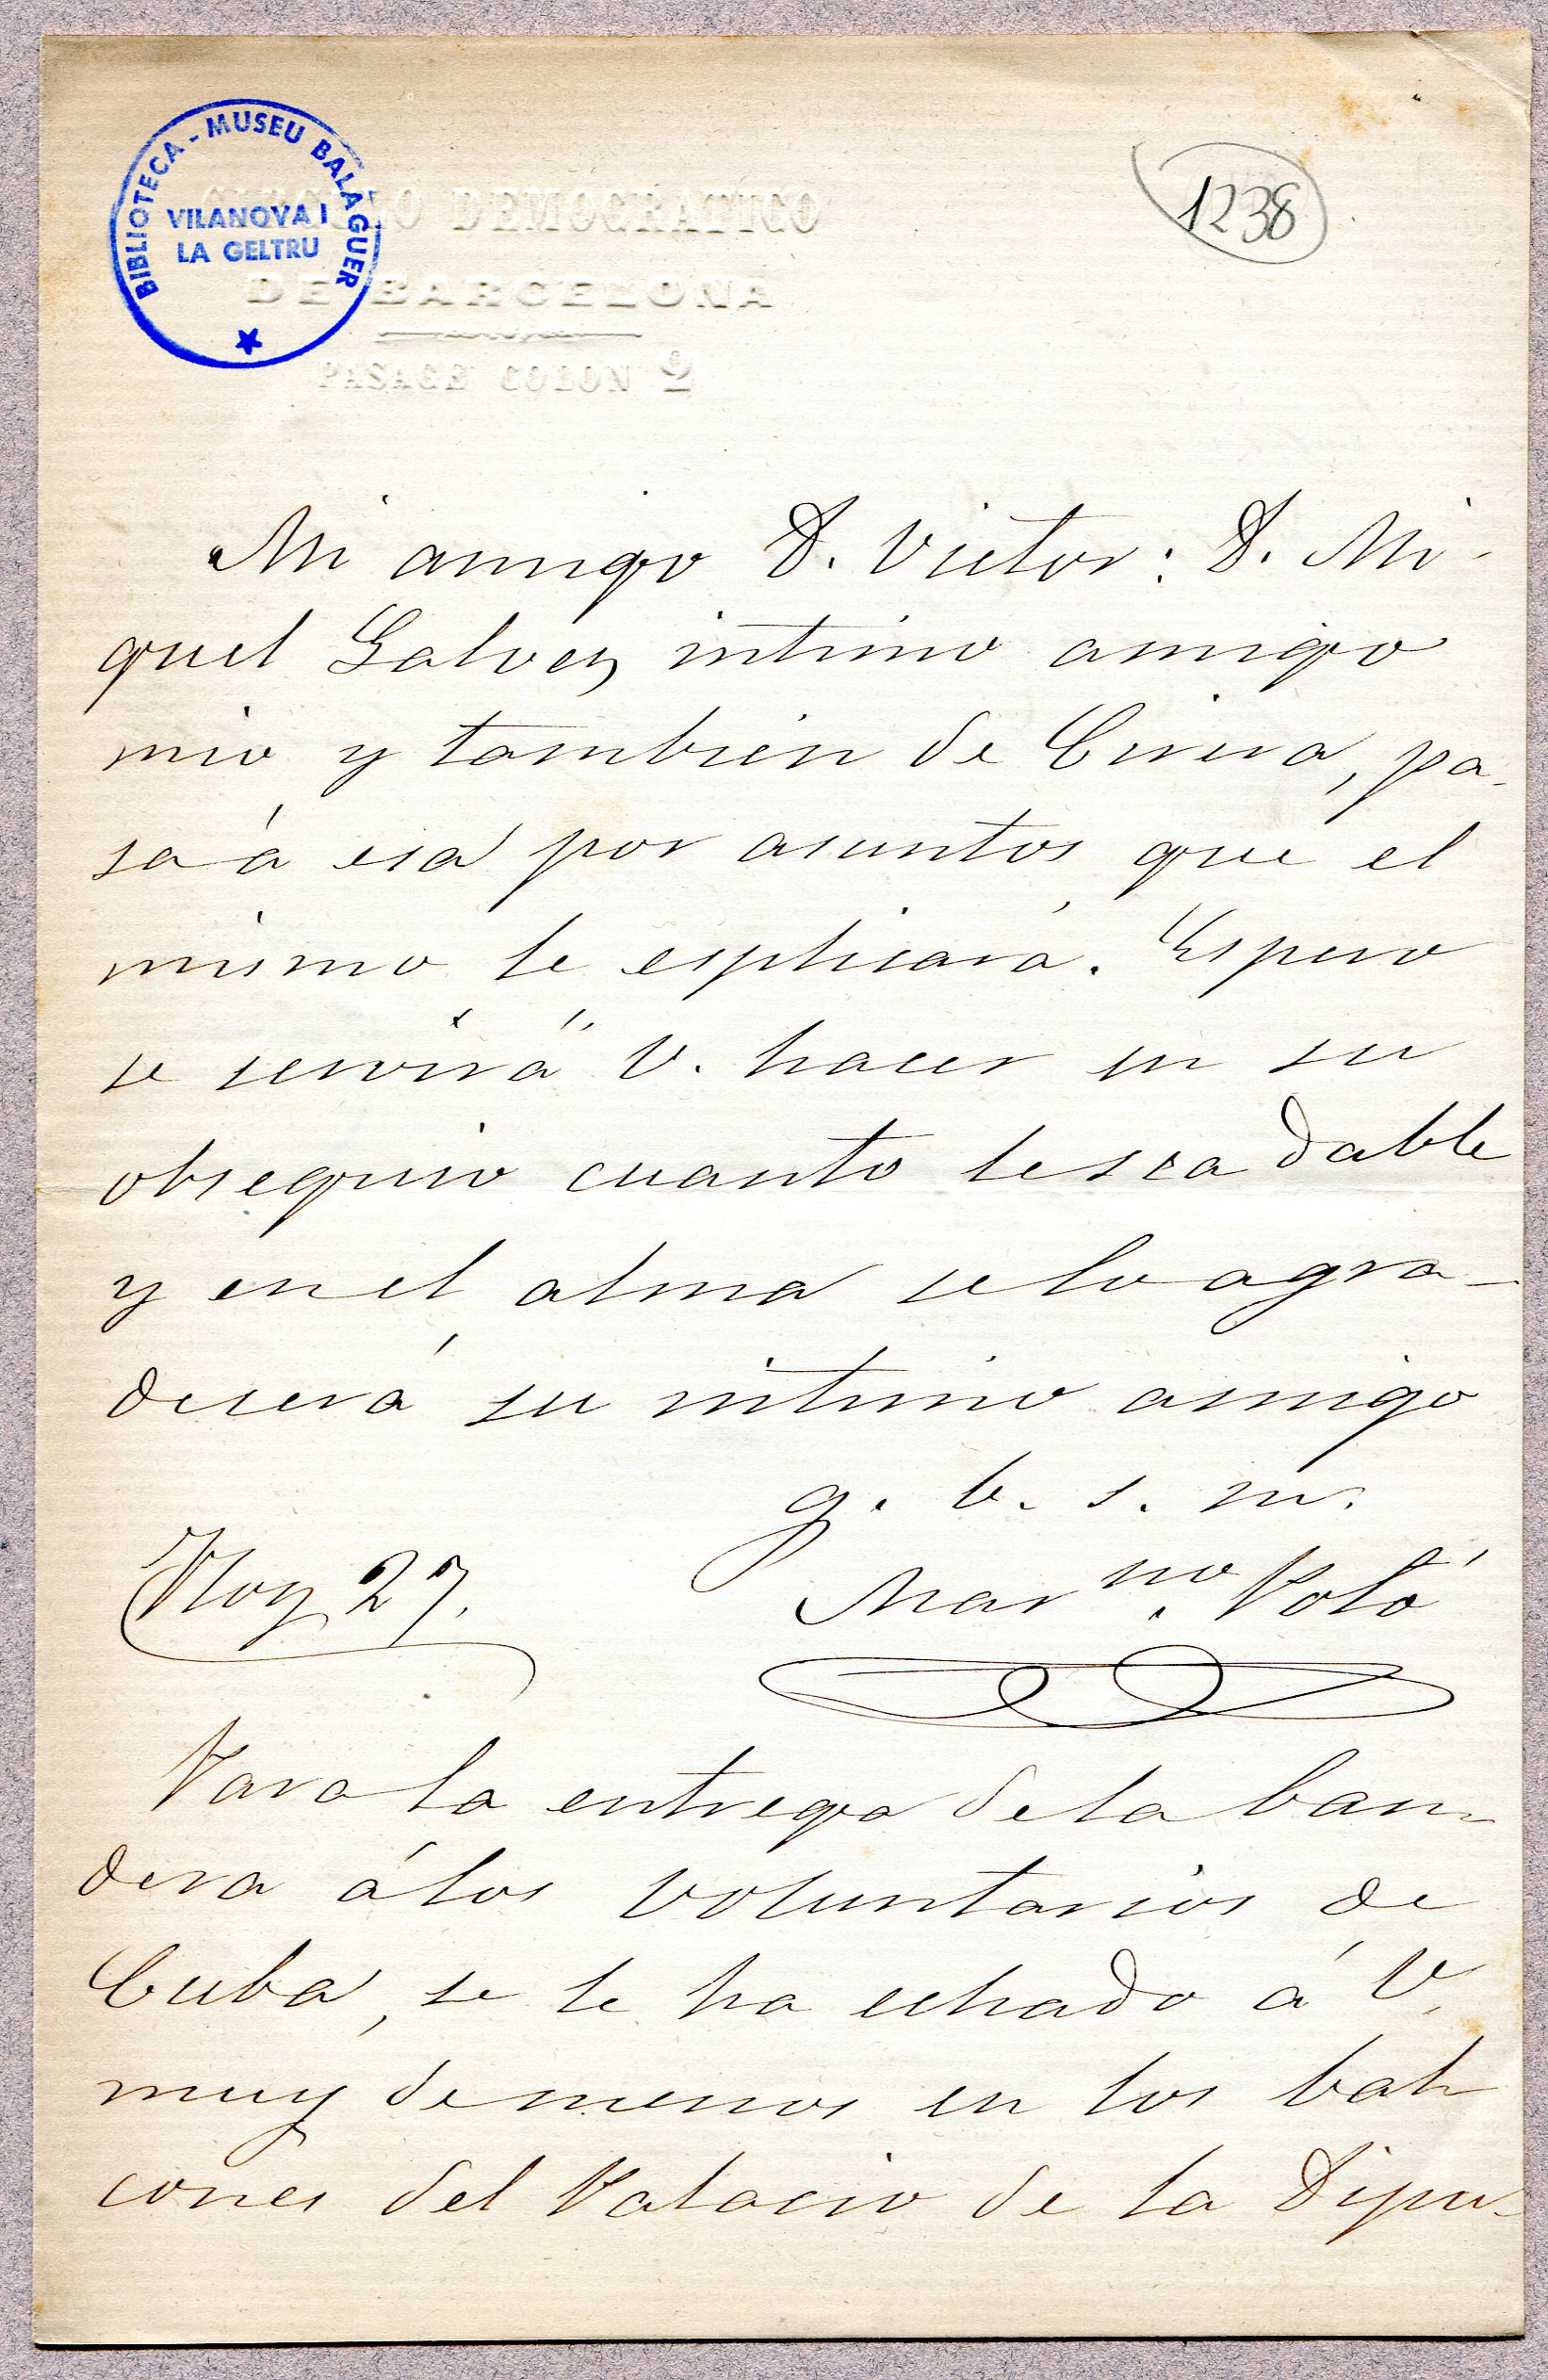 BIBLIOTECA - MUSEU BALAGUER
VILANOVA I
LA GELTRU
CIRCULO DEMOCRATICO
DE BARCELONA
PASAGE COLON 2
1238
Mi amigo D. Victor: D. Mi-
guel Galvez intimo amigo
mio y tambien de Cirera, pa-
sa á esa por asuntos que el
mismo le esplicará. Espero
se servirá V. hacer en su
obsequio cuanto le sea dable
y en el alma se lo agra-
decerá su intimo amigo
q. b. s. m.
Hoy 27.
Mar.no Poló
Para la entrega de la ban-
dera á los voluntarios de
Cuba, se le ha echado á V.
muy de menos en los bal-
cones del Palacio de la Dipu-